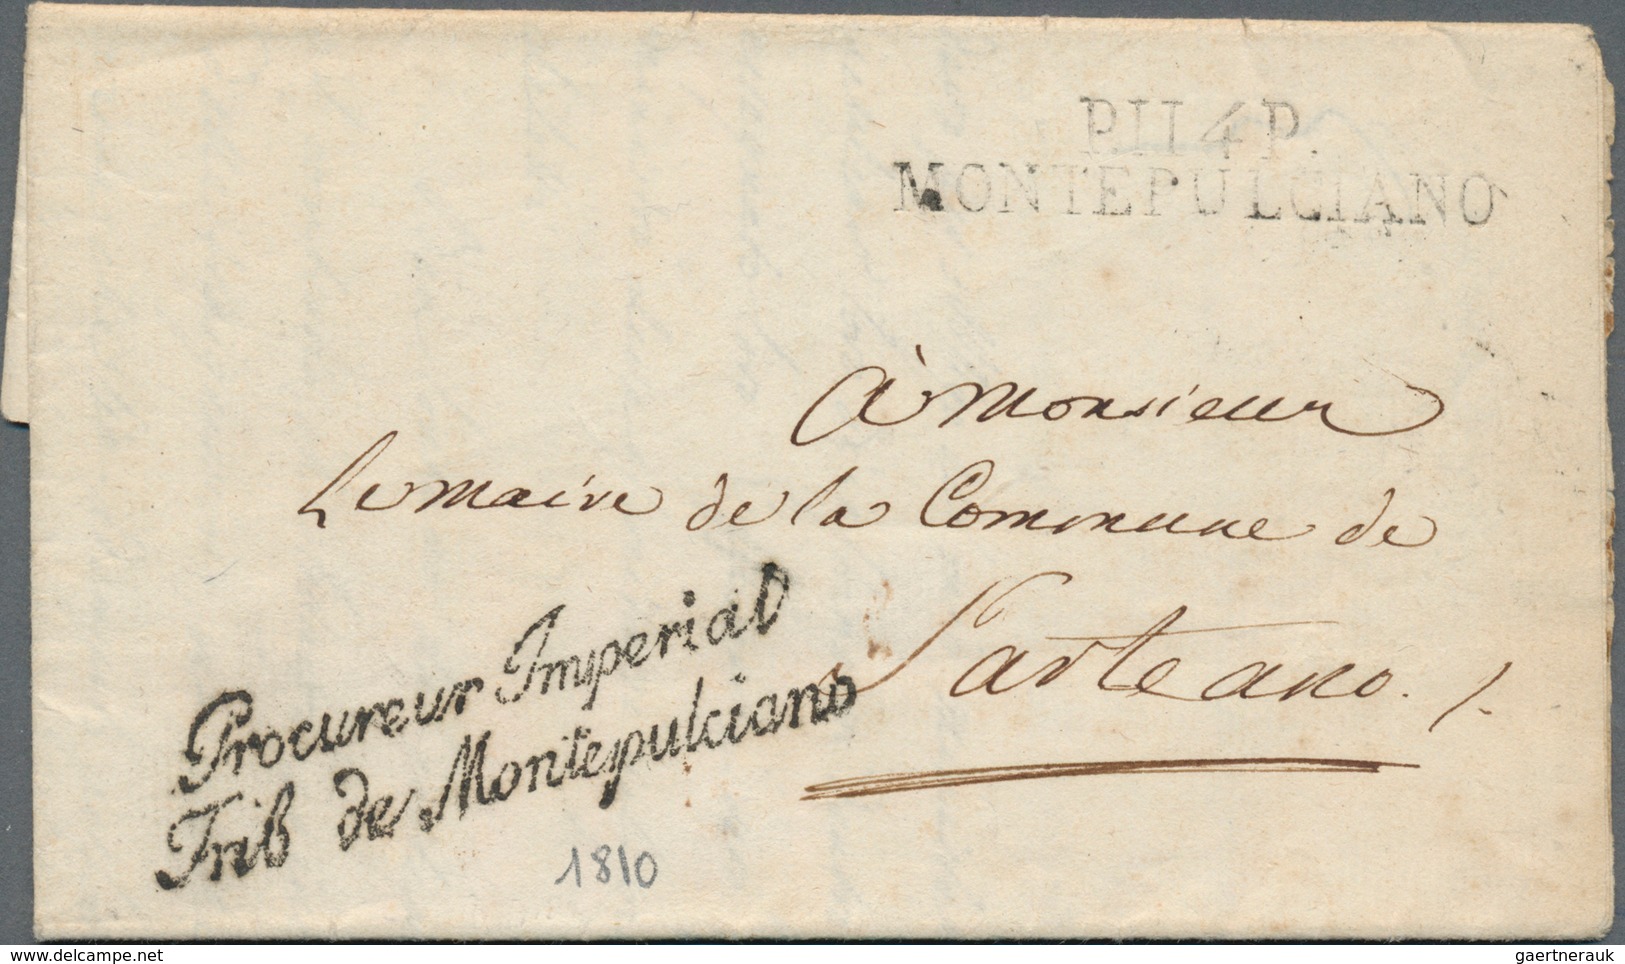 P.114.P.
MONTEPULCIANO
à Monsieur
Le maire de la Commune de
Sarteano. /.
Procureur Imperial
Trib de Montepulciano
1810
delcampe.net
gaertnerauk